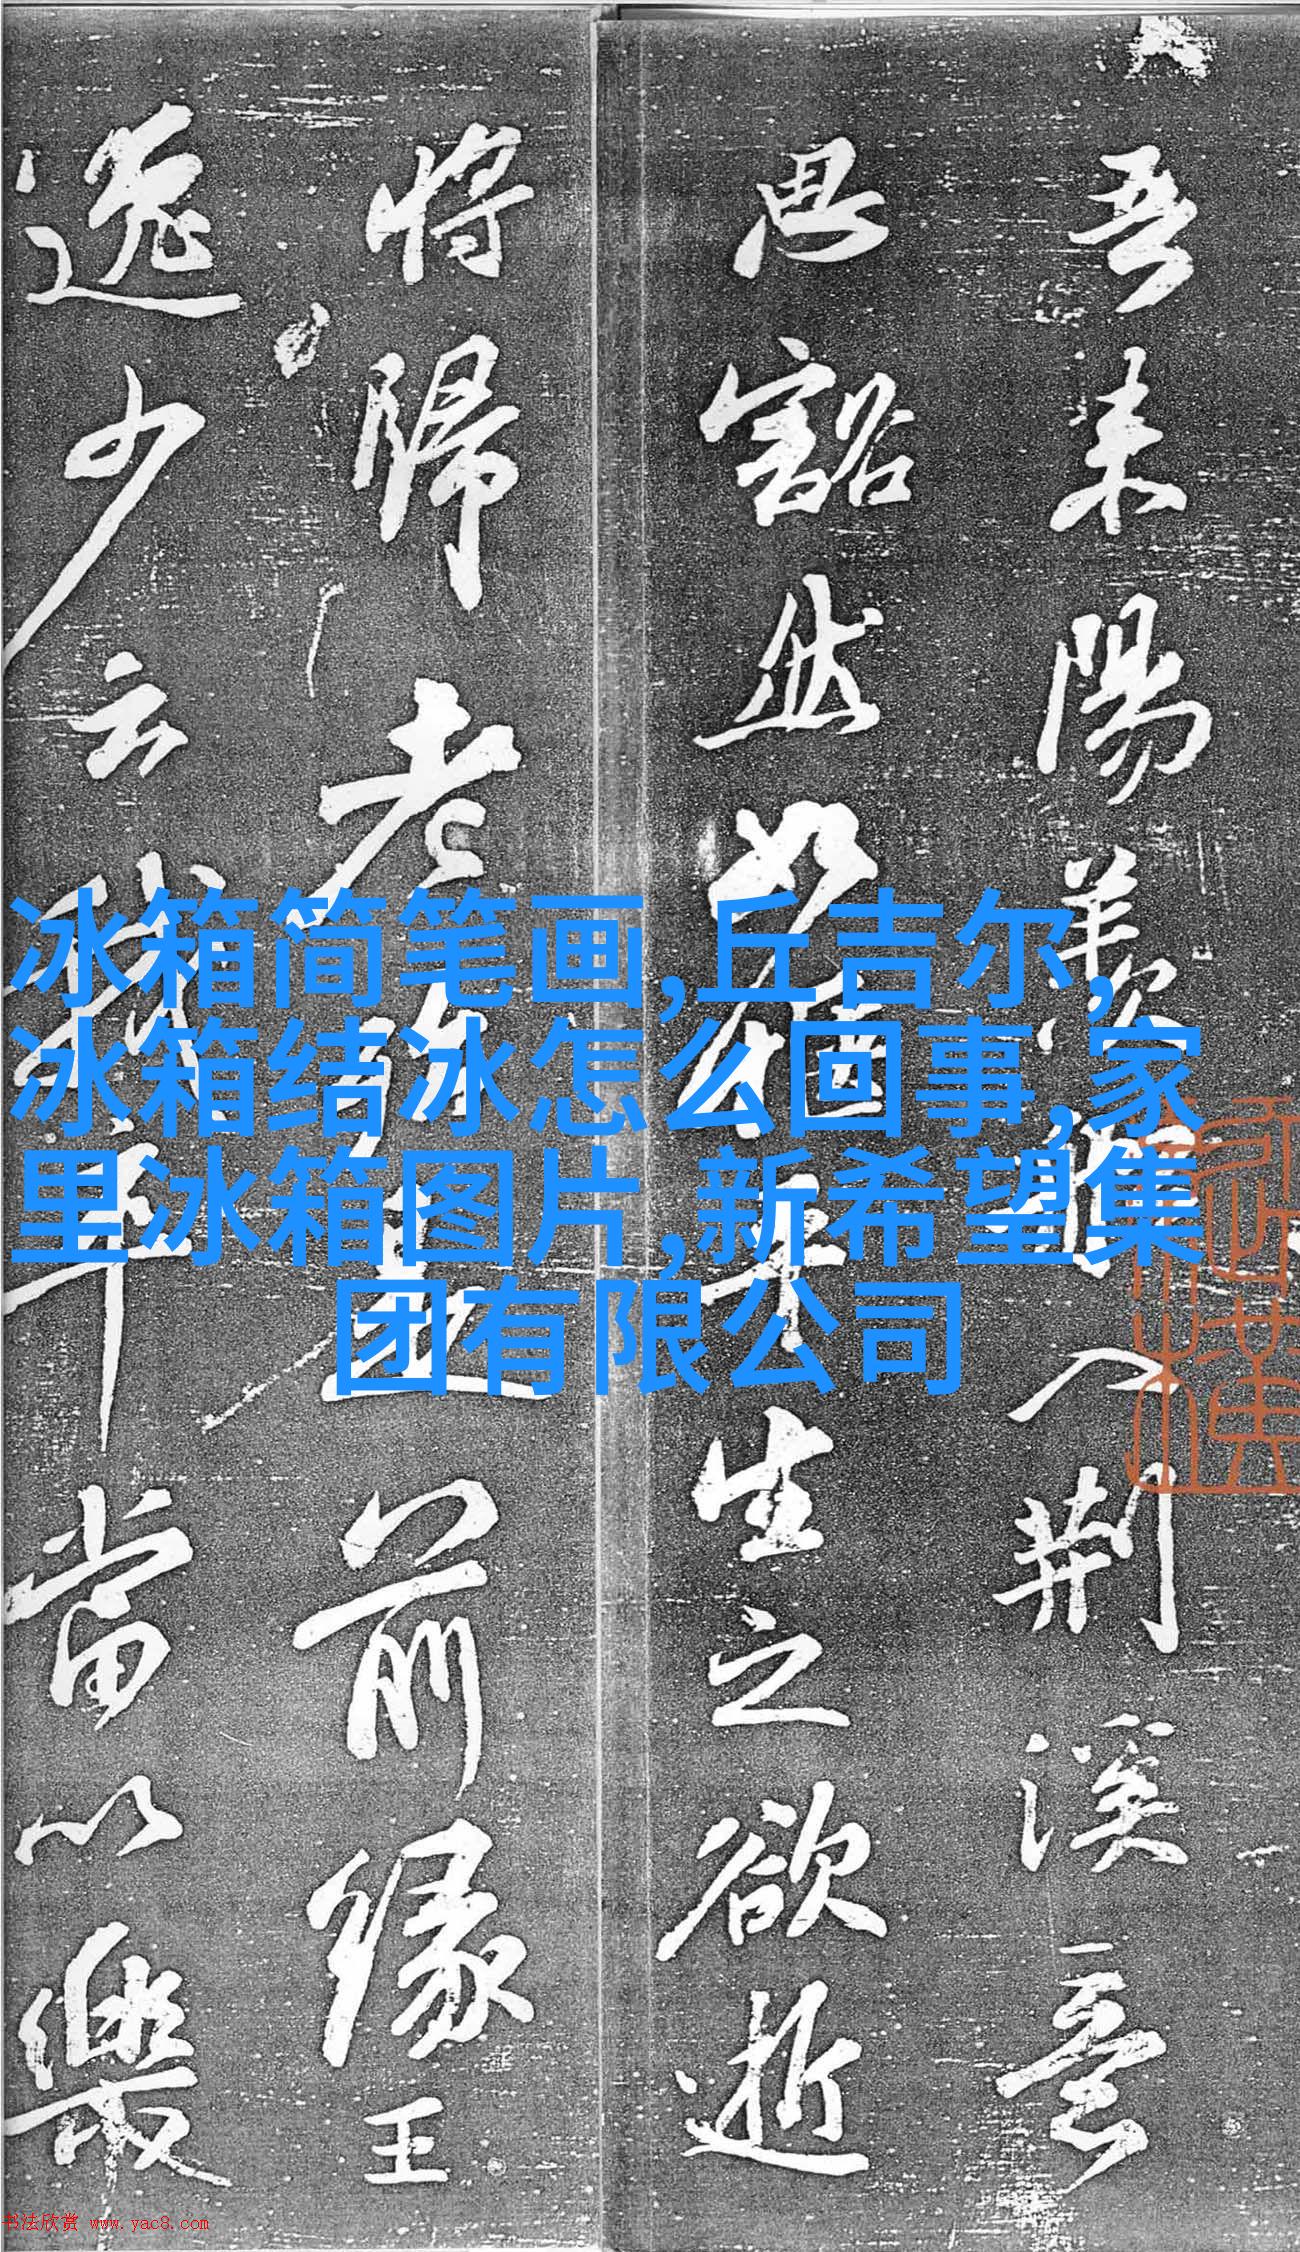 吾来陽羨船入荊溪意
思豁然如愜平生之欲逝
將歸老殆是前緣王
逸少云我卒當以樂
冰箱简笔画,丘吉尔,
冰箱结冰怎么回事,家
里冰箱图片,新希望集
团有限公司
书法欣赏 www.yac8.com